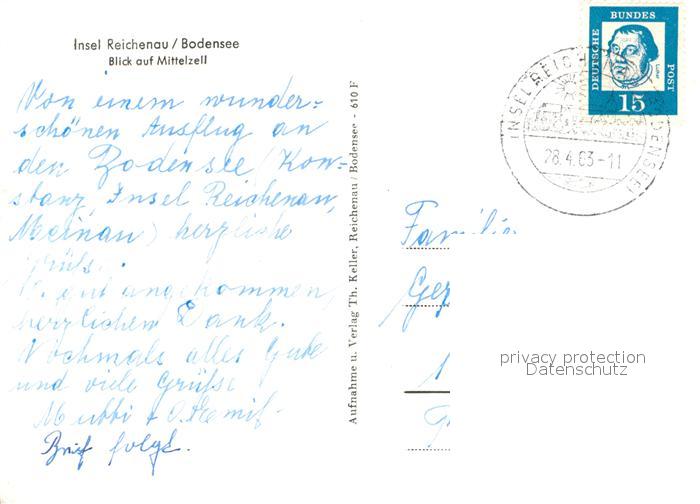 Insel Reichenau / Bodensee
Blick auf Mittelzell
Von einem wunder=
schönen Ausflug an
den Bodensee (Kon=
stanz, Insel Reichenau,
Meinau) herzliche
Grüße.
gut angekommen,
herzlichen Dank.
Nochmals alles Gute
und viele Grüße
Brief folgt.
Aufnahme u. Verlag Th. Keller, Reichenau / Bodensee - 610 F
DEUTSCHE BUNDESPOST
15
INSEL REICHENAU (BODENSEE)
28.4.63-11
Familie
privacy protection
Datenschutz